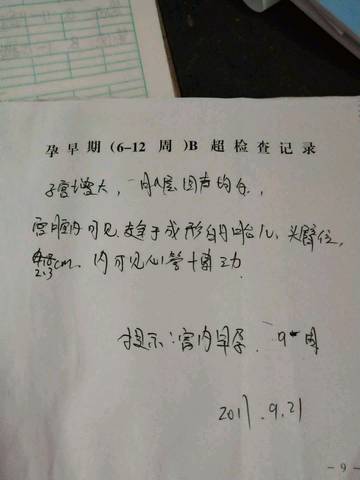 孕早期(6-12 周)B 超检查记录
子宫增大,肌层回声均匀,
宫腔内可见趋于成形的胎儿、头臀位,
2.3cm、内可见心管搏动
提示:宫内早孕, 9+周
2017.9.21
- 9 -